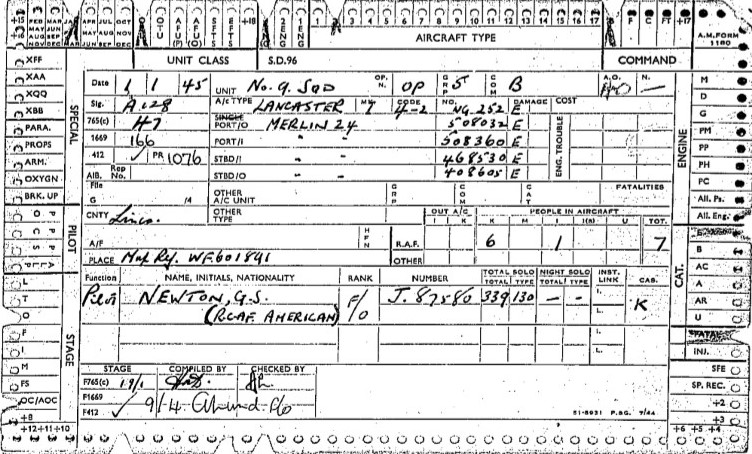 +15 FEB MAR JAN APR JUL OCT OCU AFU (P) AFU (O) SFTS EFTS +18 2 ENG 1 ENG 1 2 3 4 5 6 7 8 9 10 11 12 13 14 15 16 17 F C FT +17
MAY JUN MAY AUG NOV
AUG SEP
NOV DEC MAR JUN SEP DEC AIRCRAFT TYPE A.M.FORM 1180
UNIT CLASS S.D.96 COMMAND
XFF
XAA
XQQ
XBB
PARA.
PROPS
ARM.
OXYGN
BRK. UP
SPECIAL
PILOT
STAGE
Date 1 1 45 UNIT No. 9. SQD OP. N. OP GRP 5 COM B A.O. N. —
Sig. A128 A/C TYPE LANCASTER MK 1 CODE 4-2 NO. NG 252 E DAMAGE COST
765(c) 47 SINGLE PORT/O MERLIN 24 508032 E
1669 166 PORT/I " " 508360 E ENG. TROUBLE
412 ✓ PR 1076 STBD/I - - 468530 E
AIB. Rep No. STBD/O - - 408605 E
File G /4 OTHER A/C UNIT GRP COM CAT FATALITIES
CNTY Lincs. OTHER TYPE OUT A/C PEOPLE IN AIRCRAFT
I K K M I I(N) U TOT.
A/F HFN R.A.F. 6 1 7
PLACE Map Ref. WF601841 OTHER
Function NAME, INITIALS, NATIONALITY RANK NUMBER TOTAL SOLO NIGHT SOLO INST. LINK CAS.
TOTAL TYPE TOTAL TYPE
Pilot NEWTON, G.S. F/O J. 87580 339 130 — — I. L. K
(RCAF. AMERICAN)
I.
L.
STAGE COMPILED BY CHECKED BY
F765(c) 19/1
F1669
F412 ✓ 9/4 F/O
51-8931 P.BG. 7/44
ENGINE
M
D
G
PM
PP
PH
PC
All. Ps.
All. Eng.
CAT.
B
AC
A
AR
U
FATAL
INJ.
SFE
SP. REC.
+2
+3
+6 +5 +4
L
T
O
F
I
M
FS
OC/AOC
+8
+12+11+10